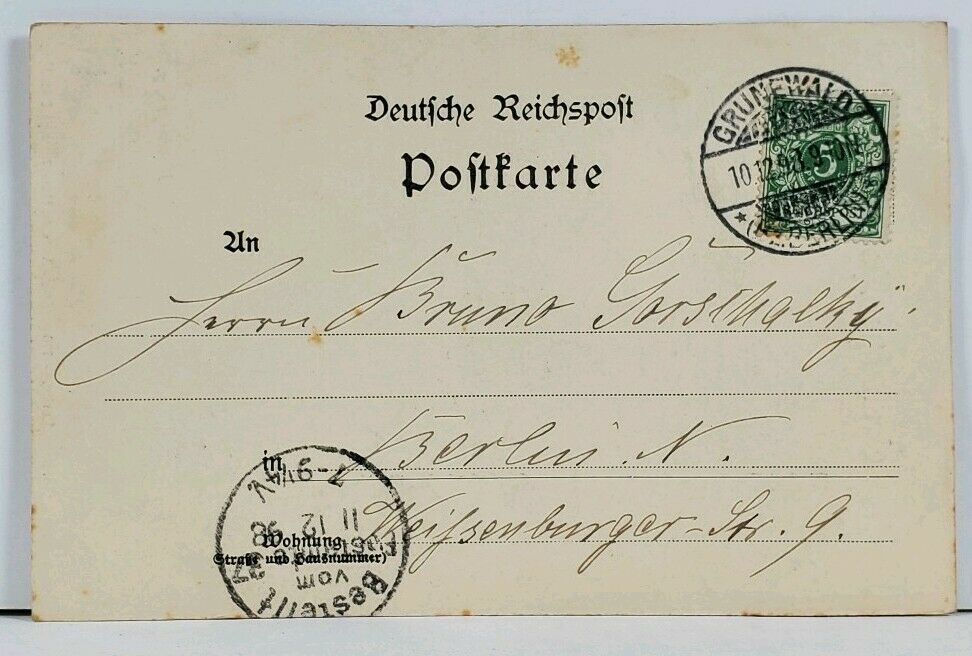 Deutsche Reichspost
Postkarte
GRUNEWALD
10.12.98. 9-10N.
* (BZ. BERLIN) *
5
An
Herrn Bruno
in Berlin. N.
Wohnung Weißenburger-Str. 9.
(Straße und Hausnummer)
Bestellt
vom
Postamte
37
11 12 98
7-9¼V.